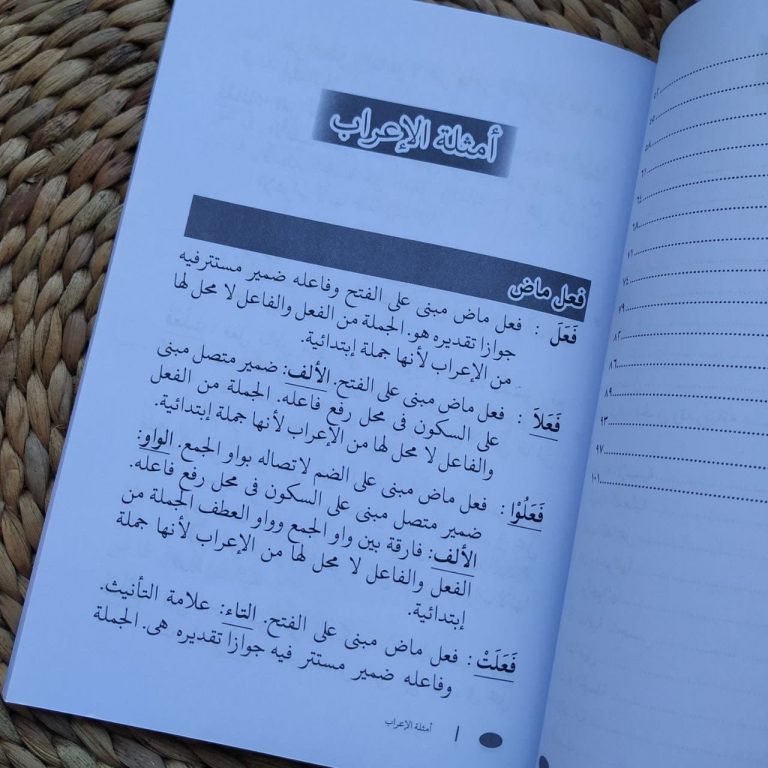 أمثلة الإعراب
فعل ماض
فَعَلَ : فعل ماض مبنى على الفتح وفاعله ضمير مستترفيه
جوازا تقديره هو. الجملة من الفعل والفاعل لا محل لها
من الإعراب لأنها جملة إبتدائية.
فَعَلاَ : فعل ماض مبنى على الفتح. الألف: ضمير متصل مبنى
على السكون فى محل رفع فاعله. الجملة من الفعل
والفاعل لا محل لها من الإعراب لأنها جملة إبتدائية.
فَعَلُوْا : فعل ماض مبنى على الضم لاتصاله بواو الجمع. الواو:
ضمير متصل مبنى على السكون فى محل رفع فاعله.
الألف: فارقة بين واو الجمع وواو العطف الجملة من
الفعل والفاعل لا محل لها من الإعراب لأنها جملة
إبتدائية.
فَعَلَتْ : فعل ماض مبنى على الفتح. التاء: علامة التأنيث.
وفاعله ضمير مستتر فيه جوازا تقديره هى. الجملة
أمثلة الإعراب |
٦٤
٦٨
٧١
٧٤
٧٩
٨٢
٨٦
٨٩
٩٣
٩٧
١٠١